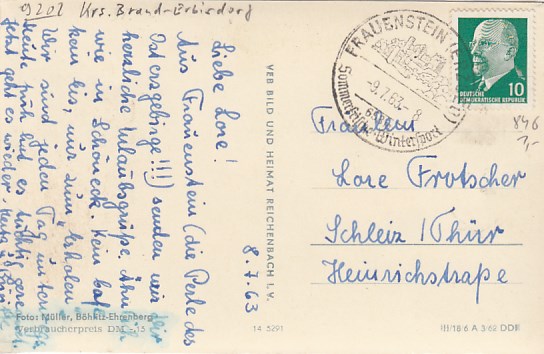 9202 Krs. Brand-Erbisdorf
8.7.63
Liebe Lore!
Aus Frauenstein (die Perle des
Osterzgebirge!!!) senden wir Dir
herzliche Urlaubsgrüße. Ähnlich
wie in Schöneck. Kein
kein Eis, nur zum Erholen
Wir sind jeden Tag unterwegs
Heut früh hat es tüchtig
Jetzt geht es wieder.
VEB BILD UND HEIMAT REICHENBACH I. V.
FRAUENSTEIN
-9.7.63.-8
Sommerfrische Wintersport
10
DEUTSCHE
DEMOKRATISCHE REPUBLIK
846
Fräulein
Lore Frotscher
Schleiz / Thür
Heinrichstraße
Foto: Müller, Böhlitz-Ehrenberg
Verbraucherpreis DM -,15
14 5291
III/18/6 A 3/62 DDR